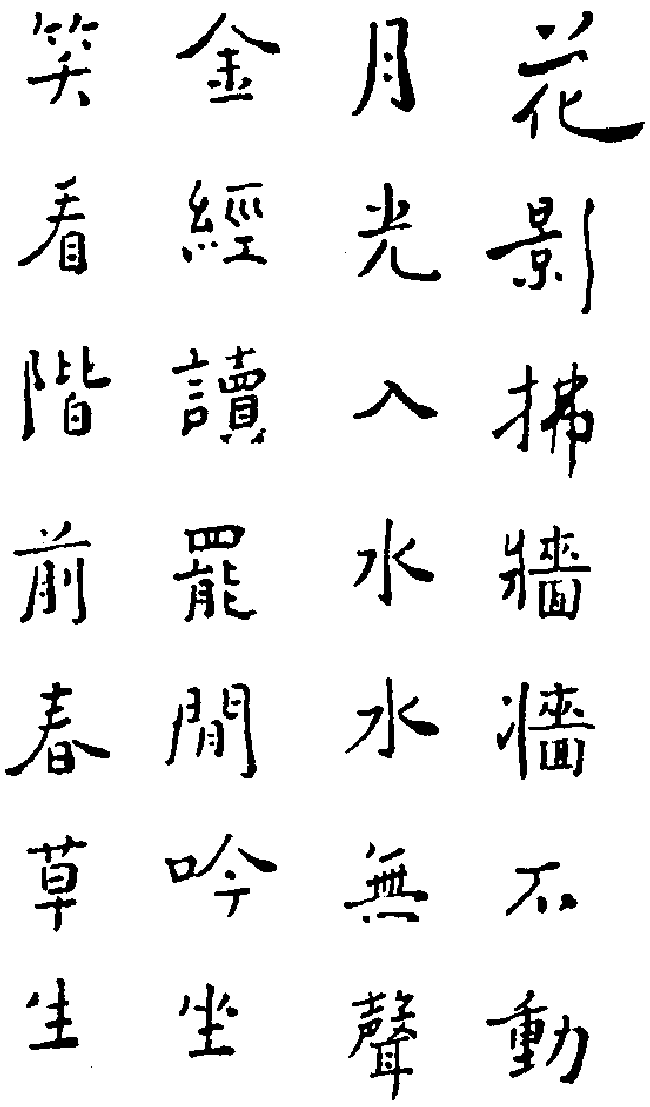 花影拂牆牆不動
月光入水水無聲
金經讀罷閒吟坐
笑看階前春草生